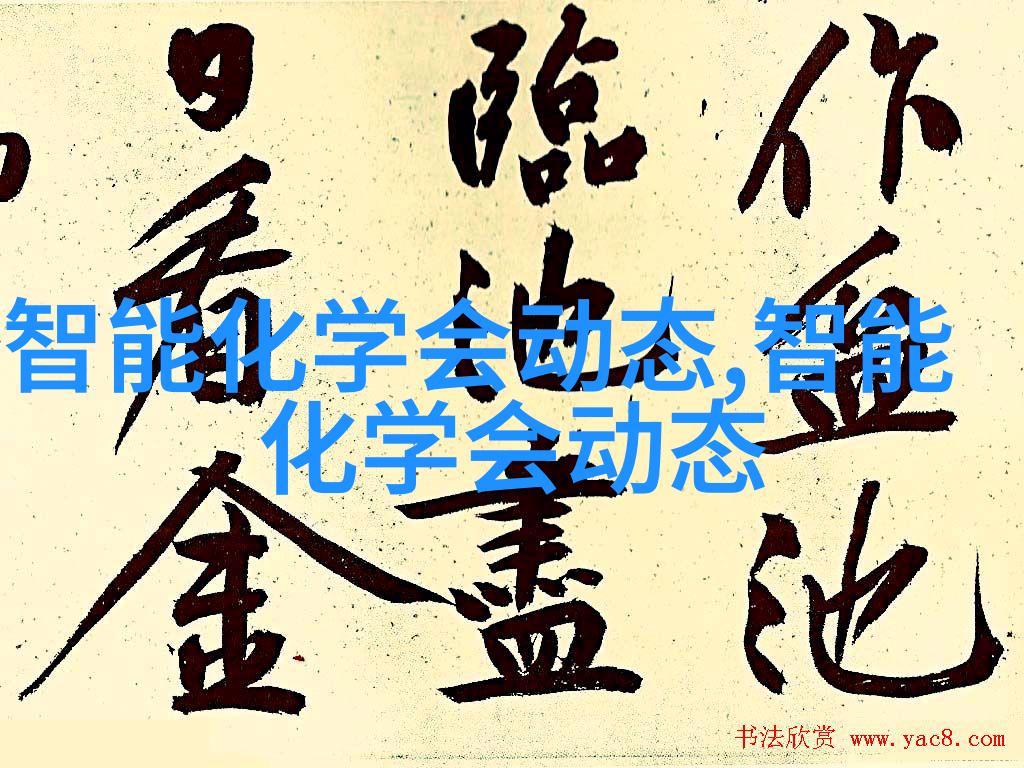 作血池
臨池盡
日看金
智能化学会动态,智能
化学会动态
书法欣赏 www.yac8.com